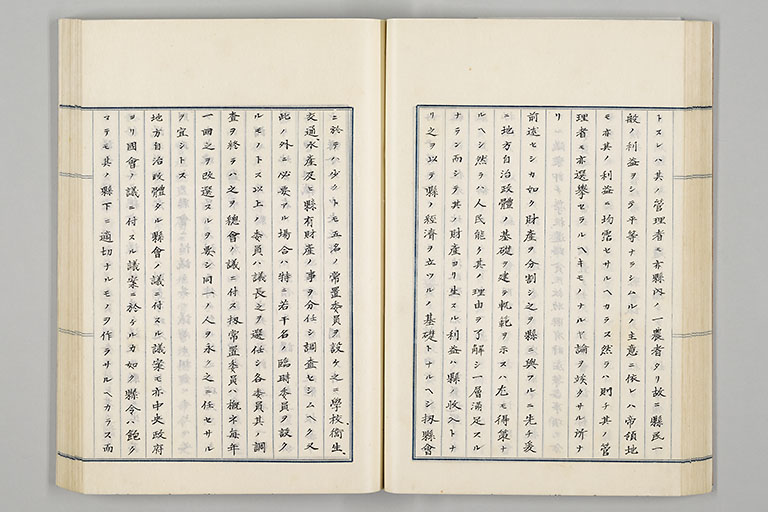 トスレハ其ノ管理者モ亦縣内ノ一農者タリ故ニ縣民一
般ノ利益ヲシテ平等ナラシムルノ主意ニ依レハ帝領地
モ亦其ノ利益ニ均霑セサルヘカラス然ラハ則チ其ノ管
理者モ亦選擧セラルヘキモノナルヤ論ヲ埃タサル所ナ
リ
前述セシカ如ク財産ヲ分割シ之ヲ縣ニ與フルニ先チ爰
ニ地方自治政體ノ基礎ヲ建テ軌範ヲ示スハ尤モ得策ナ
ルヘシ然ラハ人民能ク其ノ理由ヲ了解シ一層滿足スル
ナラン而シテ其ノ財産ヨリ生スル利益ハ縣ノ收入トナ
リ之ヲ以テ縣ノ經濟ヲ立ツルノ基礎トナルヘシ扨縣會
ニ於テハ少クトモ五名ノ常置委員ヲ設ケ之ニ學校、衞生、
交通、水産及ヒ縣有財産ノ事ヲ分任シ調査セシムヘク又
此ノ外ニ必要アル場合ハ特ニ若干名ノ臨時委員ヲ設ク
ルモノトス以上ノ委員ハ議長之ヲ選任シ各委員其ノ調
査ヲ終ラハ之ヲ總會ノ議ニ付ス扨常置委員ハ概ネ毎年
一回之ヲ改選スルヲ要シ同一ノ人ヲ永ク之ニ任セサル
ヲ宜シトス
地方自治政體タル縣會ノ議ニ付スル議案モ亦中央政府
ヨリ國會ノ議ニ付スル議案ニ於ケルカ如ク縣令ハ飽ク
マテモ其ノ縣下ニ適切ナルモノヲ作ラサルヘカラス而